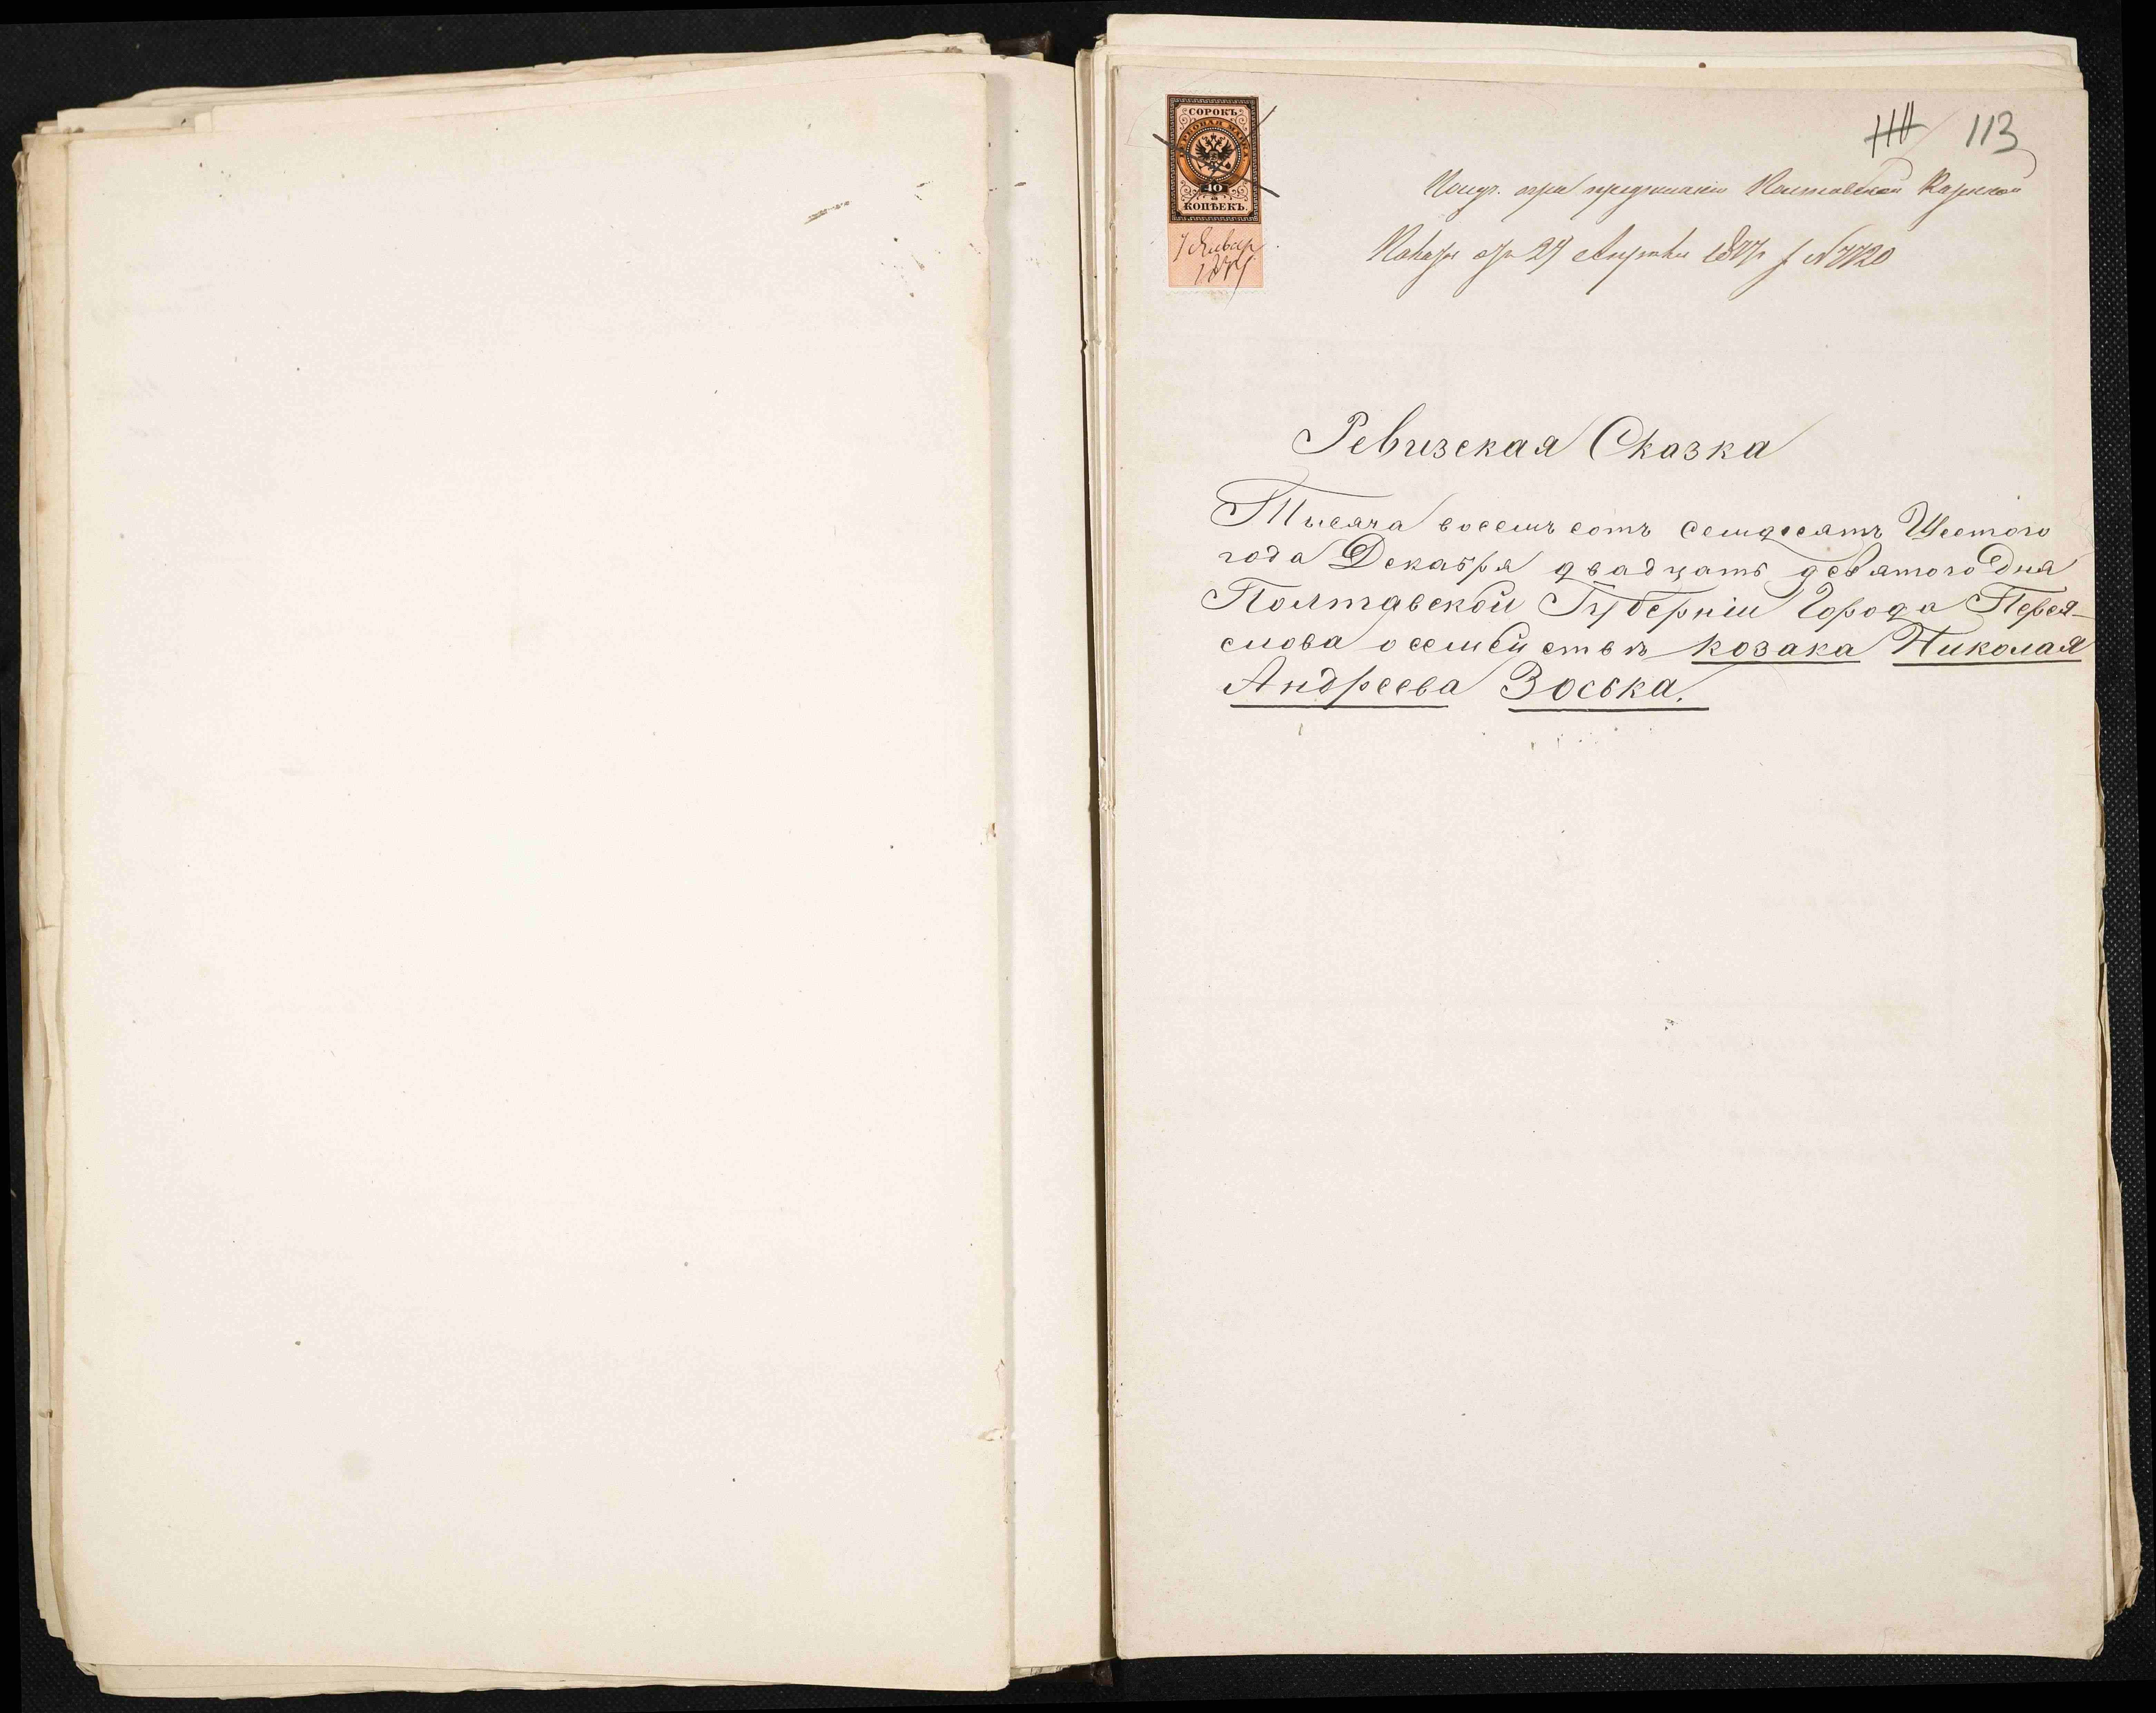 СОРОКЪ
ГЕРБОВАЯ МАРКА
40
КОПѢЕКЪ.
7 Январ
1877
113
Получ. при предписаніи Полтавской Казенной
Палаты отъ 27 Апрѣля 1877 г. № 7720
Ревизская Сказка
Тысяча восемь сотъ семдесятъ Шестого
года Декабря двадцать девятого Дня
Полтавской Губерніи Города Перея-
слова о семействѣ козака Николая
Андреева Зоська.